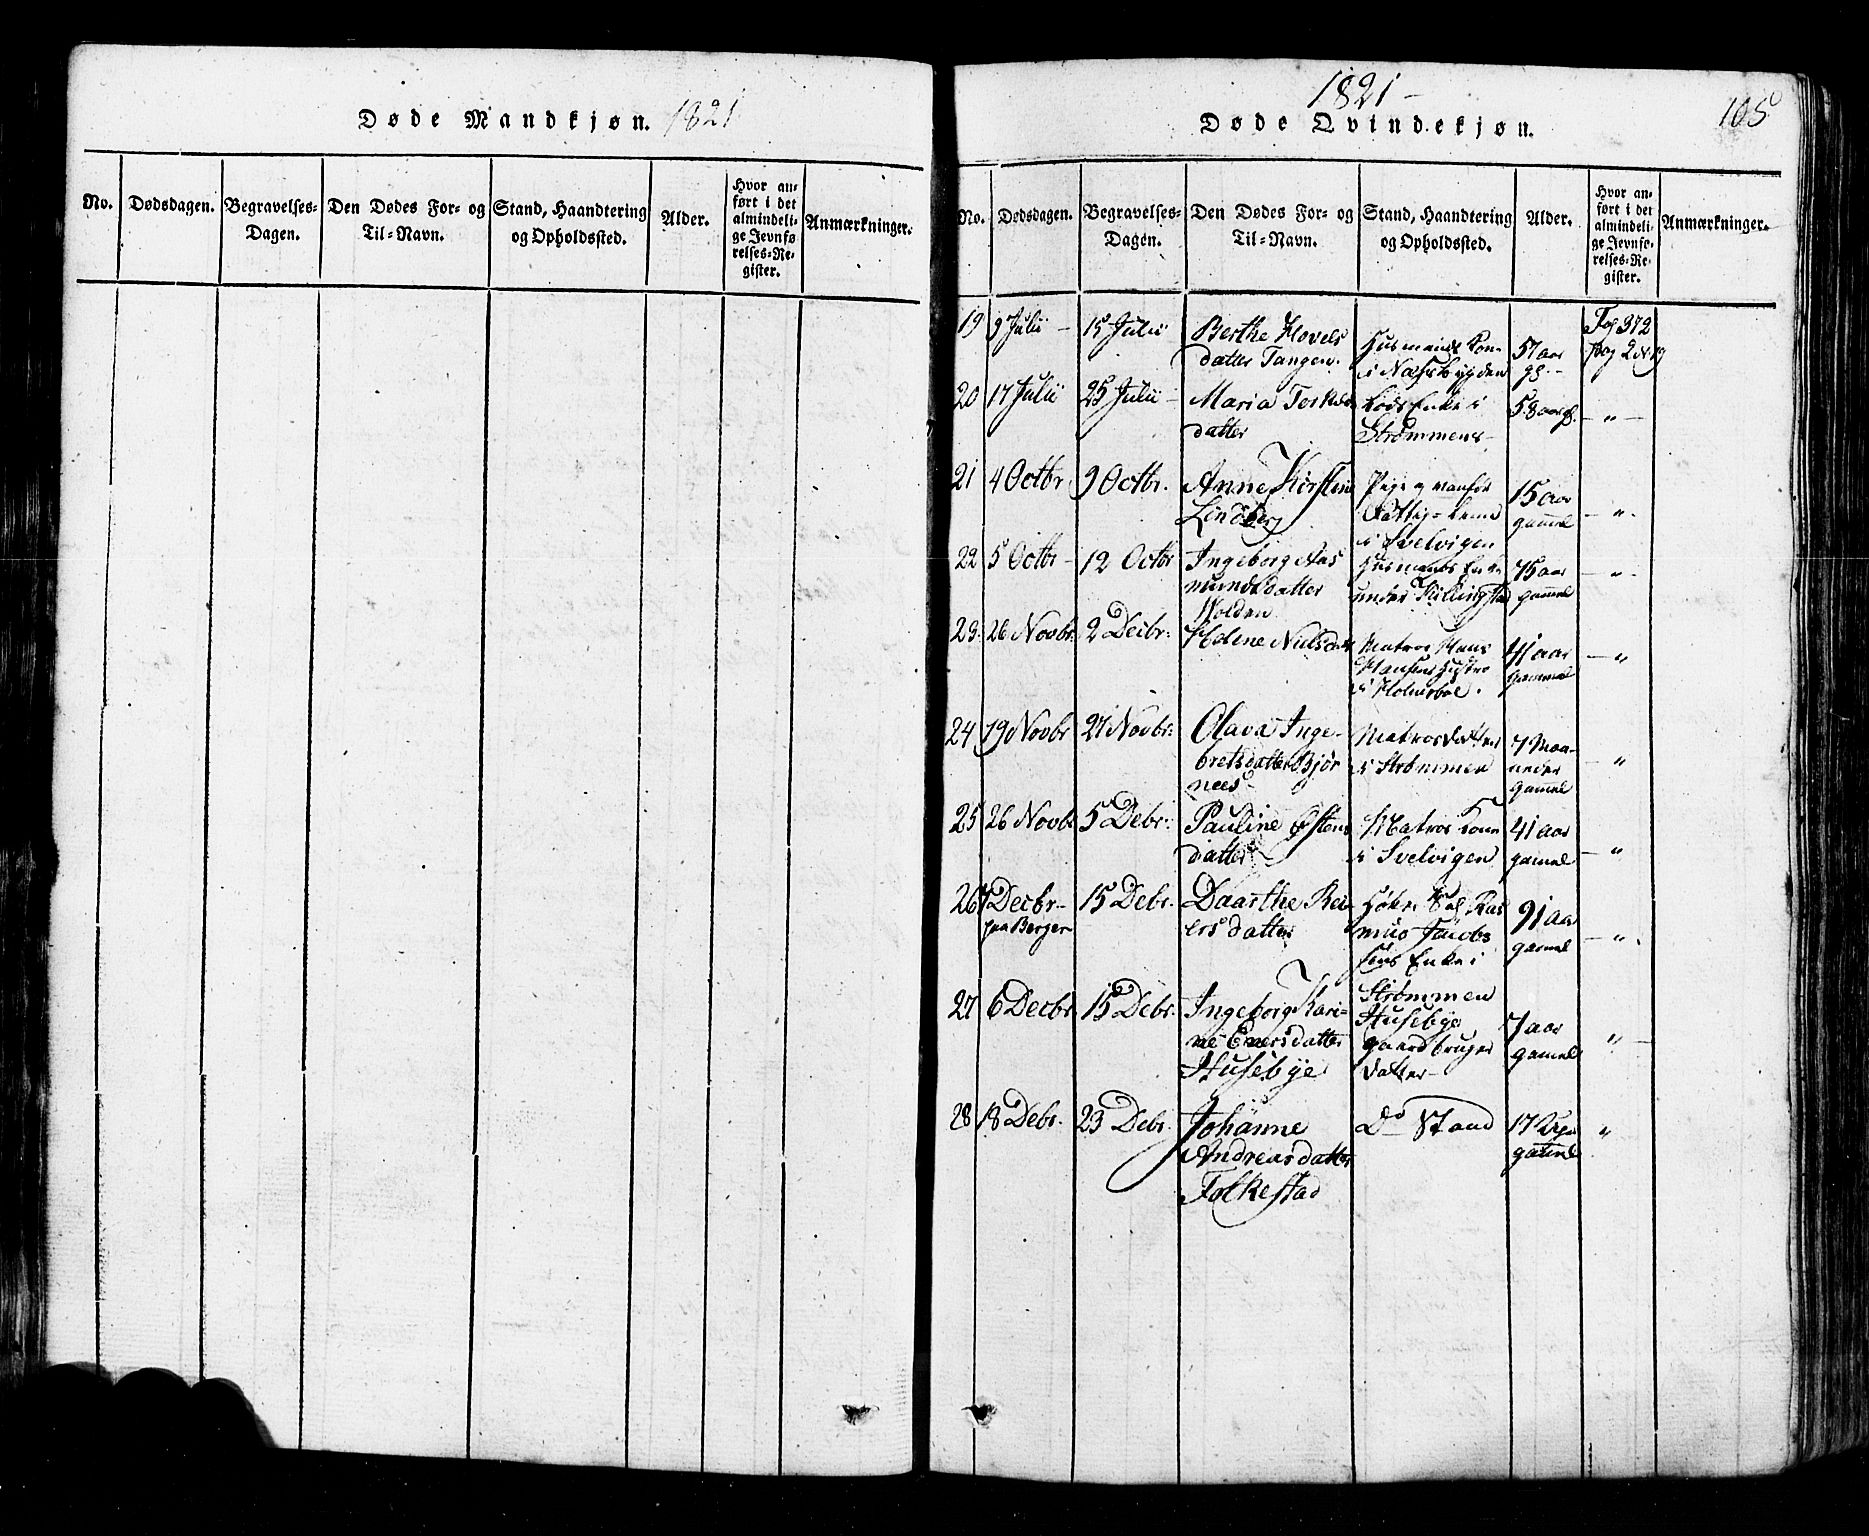 Døde Mandkjøn. 1821
No.
Dødsdagen.
Begravelses-
Dagen.
Den Dødes For- og
Til-Navn.
Stand, Haandtering
og Opholdssted.
Alder.
Hvor an-
ført i det
almindeli-
ge Jevnfø
relses-Re-
gister.
Anmærkninger.
1821 -
Døde Qvindekjøn.
105
No.
Dødsdagen.
Begravelses-
Dagen.
Den Dødes For- og
Til-Navn.
Stand, Haandtering
og Opholdssted.
Alder.
Hvor an-
ført i det
almindeli-
ge Jevnfø-
relses-Re-
gister.
Anmærkninger.
19 9 Julii - 15 Julii
Berthe Hovels
datter Tangen.
Huusmands Kone
i Næssbygden
57 aar
gl. -
Fol 372
pag 2 N 19
20 17 Julii 25 Julii -
Maria Torkels
datter
Enke i
Strømmens -
58 aar gl.
- " -
21 4 Octbr 9 Octbr.
Anne Kirstine
Lindberg
Pige og vanfør
Fattig-Lem
i Svelvigen
15 aar
gammel
- " -
22 5 Octbr - 12 Octbr
Ingeborg Aas
mundsdatter
Wolden
Huusmands Enke
under Killingstad
75 aar
gammel
- " -
23. 26 Novbr. 2 Decbr:
Helene Nielsdatr
Matros Hans
Hansens Hustro
i Holmsboe.
41 aar
gammel
- "
24 19 Novbr 27 Novbr:
Olava Inge-
bretsdatter Bjør
nees -
Matros datter
i Strømmen
7 Maa-
neder
gamel
- "
25 26 Novbr 5 Debr:
Pauline Østens
datter
Matros Kone
i Svelvigen
41 aar
gamel
- "
26 7 Decbr - 15 Debr.
paa Berger
Daarthe Rei-
ersdatter
Sal. Ras
mus Jacob
sens Enke i
Strømmen
91 aar
gamel
- " -
27 6 Decbr 15 Debr.
Ingeborg Kari-
ne Enersdatter
Husebye
Husebye
gaardbruger
datter -
7 aar
gamel
" -
28 18 Debr. 23 Debr.
Johanne
Andreasdatter
Folkestad
Do Stand
17 Uger
gamel
"